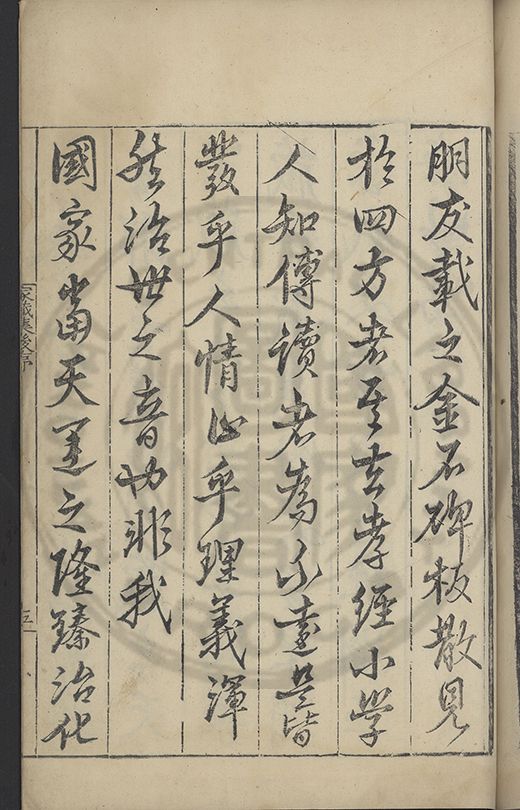 朋友載之金石碑板散見
於四方者至孝經小學
人知傳讀者為不遠是皆
發乎人情止乎理義渾
然治世之音也非我
國家當天運之隆臻治化